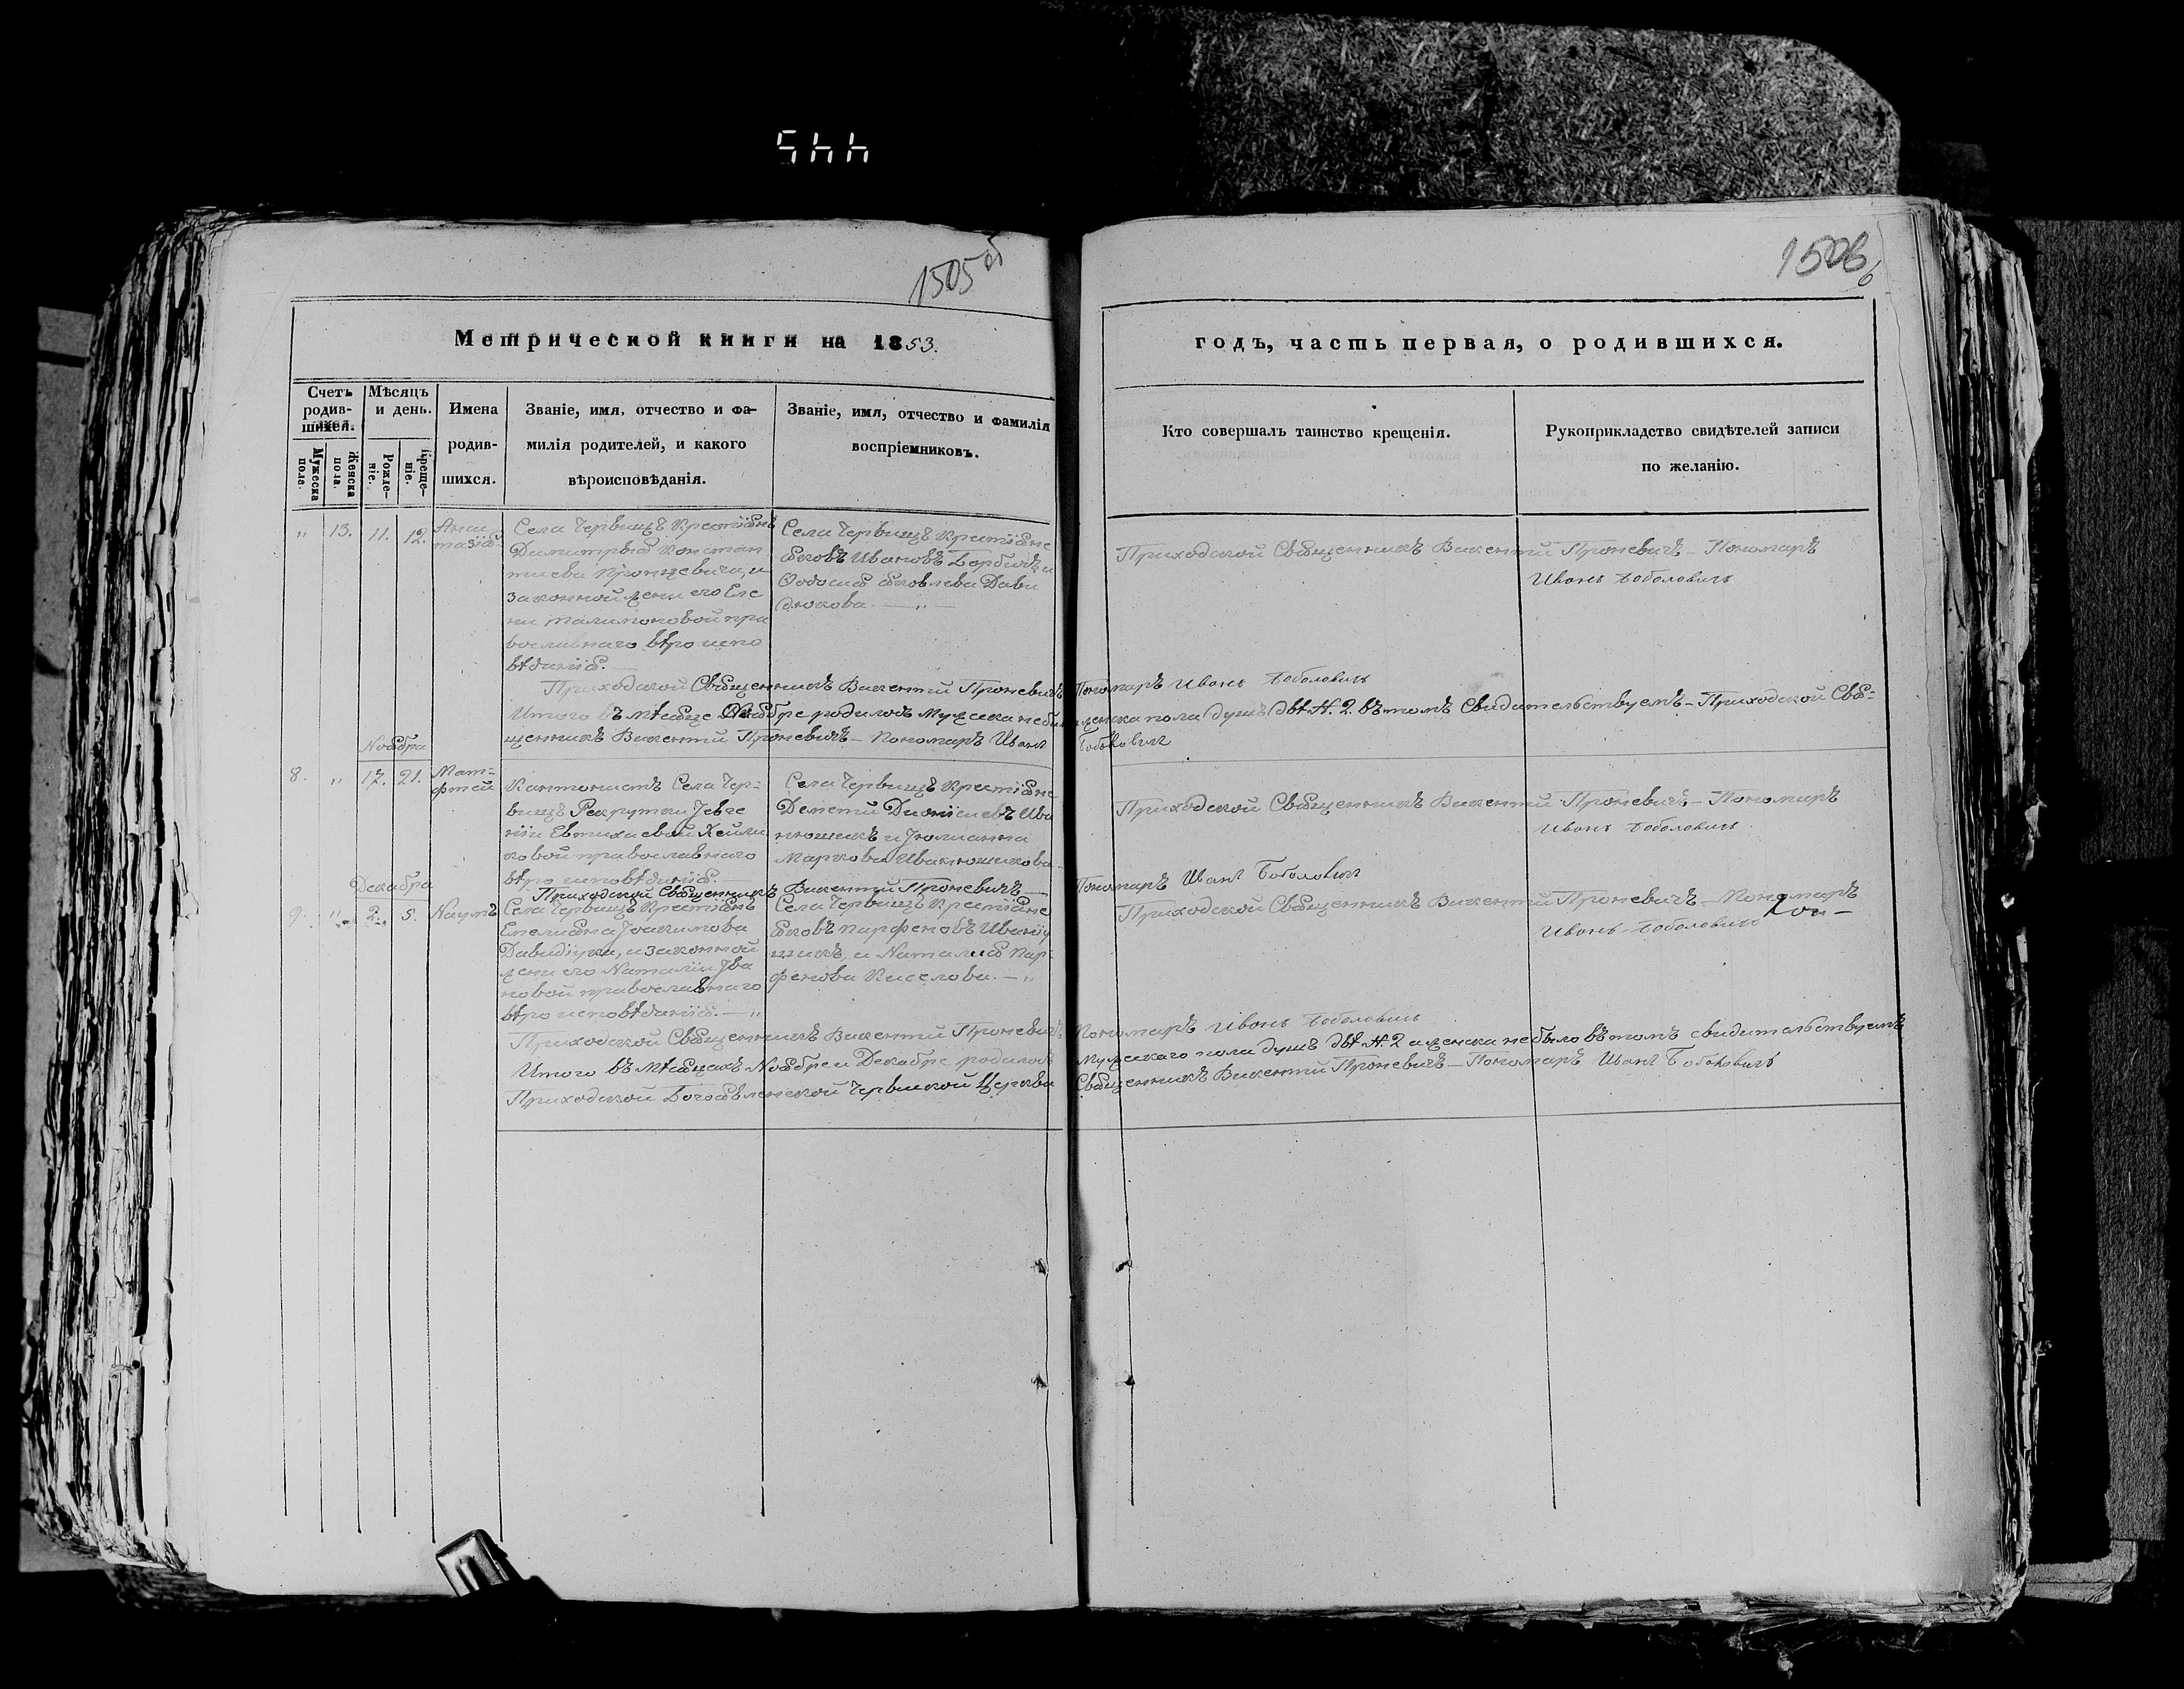 544
1505 об
1506
6
Метрической книги на 1853.
годъ, часть первая, о родившихся.
Счетъ родившихся.
Мужеска пола.
Женска пола.
Мѣсяцъ и день.
Рожденіе.
Крещеніе.
Имена родившихся.
Званіе, имя, отчество и фамилія родителей, и какого вѣроисповѣданія.
Званіе, имя, отчество и фамилія воспріемниковъ.
Кто совершалъ таинство крещенія.
Рукоприкладство свидѣтелей записи по желанію.
" 13. 11. 12.
Анас
тазія
Села Червищъ Крестіянъ
Димитрыя Констан
тиева
законной жены его Еле
ны
вославнаго вѣроиспо
вѣданія.
Села Червищъ Крестіяне
Яковъ Ивановъ и
Яковлева Дави
дюкова. — " —
Приходской Священникъ Викентій Проневичъ — Пономаръ
Иванъ Боболовичъ
Приходской Священникъ Викентій Проневичъ Пономаръ Иванъ Боболовичъ
Итого въ мѣсяце родилось мужеска небыло женска пола душъ двѣ N. 2. въ томъ Свидительствуемъ — Приходской Свя=
щенникъ Викентій Проневичъ — Пономаръ Иванъ Боболовичъ
Ноября
8. " 17. 21.
Мат=
фтей
Кантонистъ Села Чер=
вищъ Рекрутки Јевге
ніи Евтихиевой
ковой православнаго
вѣроисповѣданія.
Села Червищъ Крестіяне
Дементій Дионісиевъ Ива
нюшикъ и Јулианна
Маркова Иванюшикова
Приходской Священникъ Викентій Проневичъ — Пономаръ
Иванъ Боболовичъ
Приходскій Священникъ Викентій Проневичъ — Пономаръ Иванъ Боболовичъ
Декабря
9. " 2. 5. Наумъ
Села Червищъ Крестіянъ
Емелияна Јоакимова
Давидіука, и законной
жены его Наталіи Јва
новой православнаго
вѣроисповѣданія. — "
Села Червищъ Крестіяне
Яковъ Парфеновъ Иваніу
шикъ, и Наталия Пар=
фенова Киселова. — "
Приходской Священникъ Викентій Проневичъ — Пономаръ
Иванъ — Боболовичъ
Приходской Священникъ Викентій Проневичъ Пономаръ Иванъ Боболовичъ
Итого въ мѣсяцахъ Ноябре и Декабре родилось мужескаго пола душъ двѣ N. 2 а женска небыло въ томъ свидительствуемъ
Приходской Богоявленской Червиской Церкви Священникъ Викентій Проневичъ — Пономаръ Иванъ Боболовичъ